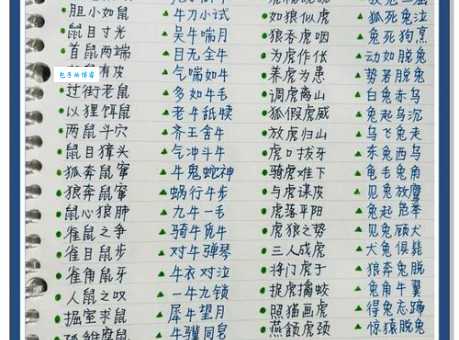 胆小如鼠 牛刀小试 如狼似虎 狐死兔泣
鼠目寸光 吴牛喘月 狼吞虎咽 兔死狗烹
首鼠两端 目无全牛 为虎作伥 动如脱兔
有皮 气喘如牛 养虎为患 势若脱兔
过街老鼠 多如牛毛 调虎离山 白兔赤乌
以狸饵鼠 老牛舐犊 狐假虎威 兔起乌沉
两鼠斗穴 齐王舍牛 放虎归山 乌飞兔走
鼠目獐头 气冲斗牛 虎口拔牙 东兔西乌
狐奔鼠窜 牛鬼蛇神 骑虎难下 龟毛兔角
狼奔鼠窜 蜗行牛步 与虎谋皮 见兔放鹰
鼠心狼肺 九牛一毛 虎落平阳 兔起危举
雀鼠之争 骑牛觅牛 虎狼之势 见兔顾犬
雀目鼠步 对牛弹琴 三人成虎 犬兔俱毙
雀角鼠牙 牛衣对泣 将门虎子 狼奔兔脱
人鼠之叹 一牛九锁 捉虎擒蛟 兔角牛翼
掘室求鼠 犀牛望月 照猫画虎 得兔忘蹄
牛骥同皂 燕颔虎颈 惊猿脱兔